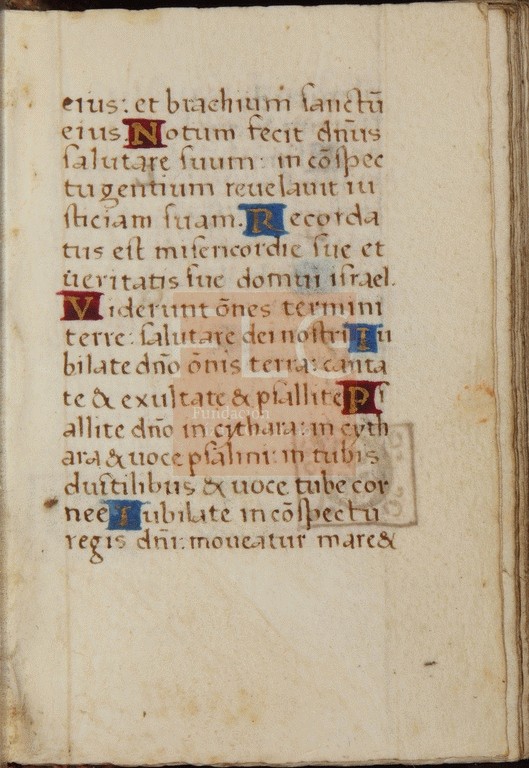 eius: et brachium sanctū
eius. Notum fecit dn̄us
salutare suum: in cōspec
tu gentium reuelauit iu
sticiam suam. Recorda
tus est misericordie sue et
ueritatis sue domui israel.
Viderunt ōnes termini
terre: salutare dei nostri Iu
bilate dn̄o ōnis terra: canta
te & exultate & psallite Ps
allite dn̄o in cythara: in cyth
ara & uoce psalmi: in tubis
ductilibus & uoce tube cor
nee Iubilate in cōspectu
regis dn̄i: moueatur mare &
FLG
Fundación